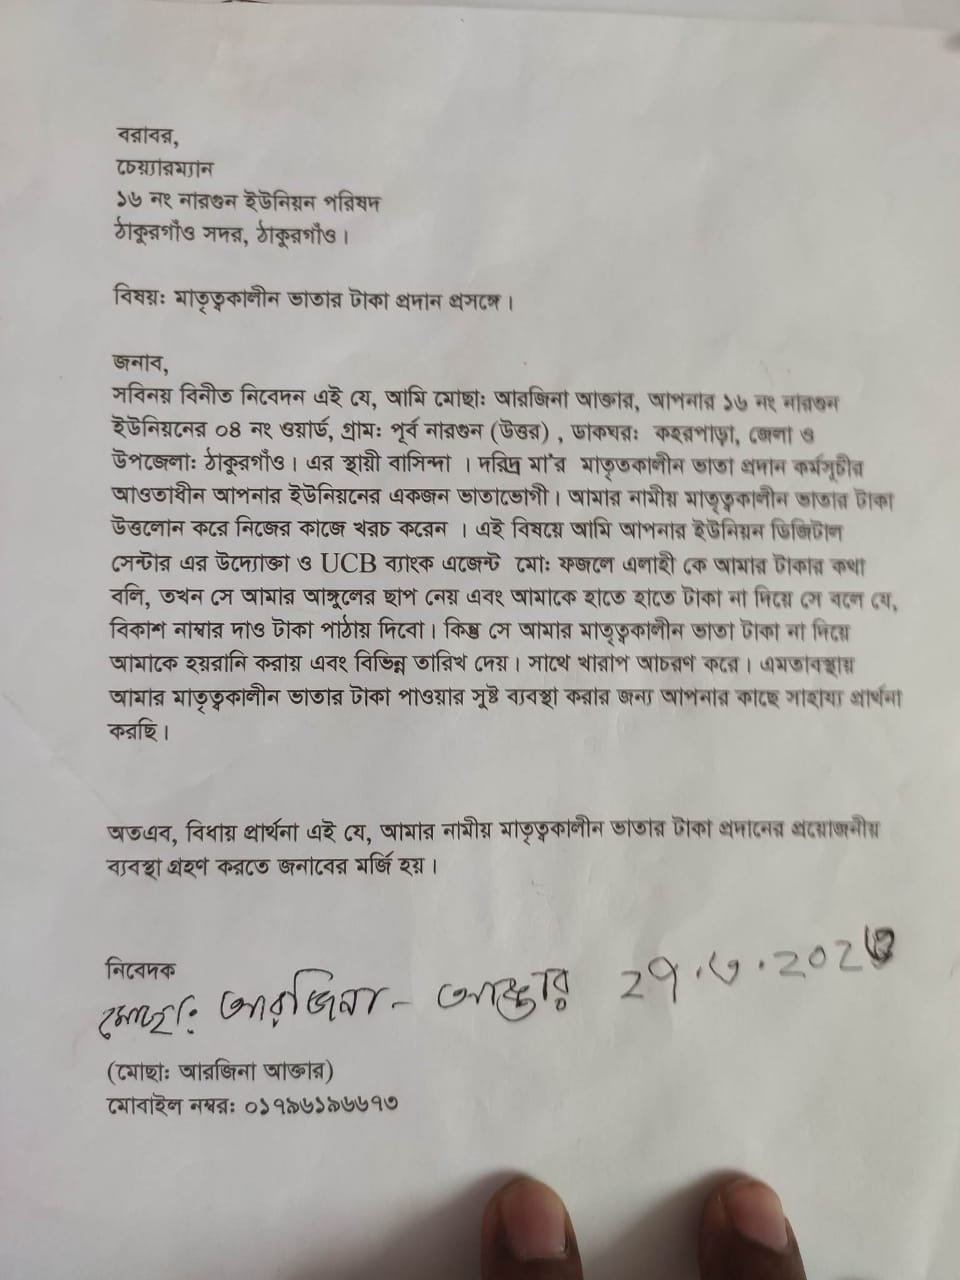 বরাবর,
চেয়্যারম্যান
১৬ নং নারগুন ইউনিয়ন পরিষদ
ঠাকুরগাঁও সদর, ঠাকুরগাঁও।
বিষয়ঃ মাতৃত্বকালীন ভাতার টাকা প্রদান প্রসঙ্গে।
জনাব,
সবিনয় বিনীত নিবেদন এই যে, আমি মোছাঃ আরজিনা আক্তার, আপনার ১৬ নং নারগুন
ইউনিয়নের ০৪ নং ওয়ার্ড, গ্রামঃ পূর্ব নারগুন (উত্তর) , ডাকঘরঃ কহরপাড়া, জেলা ও
উপজেলাঃ ঠাকুরগাঁও। এর স্থায়ী বাসিন্দা । দরিদ্র মা'র মাতৃতকালীন ভাতা প্রদান কর্মসূচীর
আওতাধীন আপনার ইউনিয়নের একজন ভাতাভোগী। আমার নামীয় মাতৃত্বকালীন ভাতার টাকা
উত্তলোন করে নিজের কাজে খরচ করেন । এই বিষয়ে আমি আপনার ইউনিয়ন ডিজিটাল
সেন্টার এর উদ্যোক্তা ও UCB ব্যাংক এজেন্ট মোঃ ফজলে এলাহী কে আমার টাকার কথা
বলি, তখন সে আমার আঙ্গুলের ছাপ নেয় এবং আমাকে হাতে হাতে টাকা না দিয়ে সে বলে যে,
বিকাশ নাম্বার দাও টাকা পাঠায় দিবো। কিন্তু সে আমার মাতৃত্বকালীন ভাতা টাকা না দিয়ে
আমাকে হয়রানি করায় এবং বিভিন্ন তারিখ দেয়। সাথে খারাপ আচরণ করে। এমতাবস্থায়
আমার মাতৃত্বকালীন ভাতার টাকা পাওয়ার সুষ্ট ব্যবস্থা করার জন্য আপনার কাছে সাহায্য প্রার্থনা
করছি।
অতএব, বিধায় প্রার্থনা এই যে, আমার নামীয় মাতৃত্বকালীন ভাতার টাকা প্রদানের প্রয়োজনীয়
ব্যবস্থা গ্রহণ করতে জনাবের মর্জি হয়।
নিবেদক
মোছাঃ আরজিনা - আক্তার
(মোছাঃ আরজিনা আক্তার)
মোবাইল নম্বরঃ ০১৭৯৬১৯৬৬৭৩